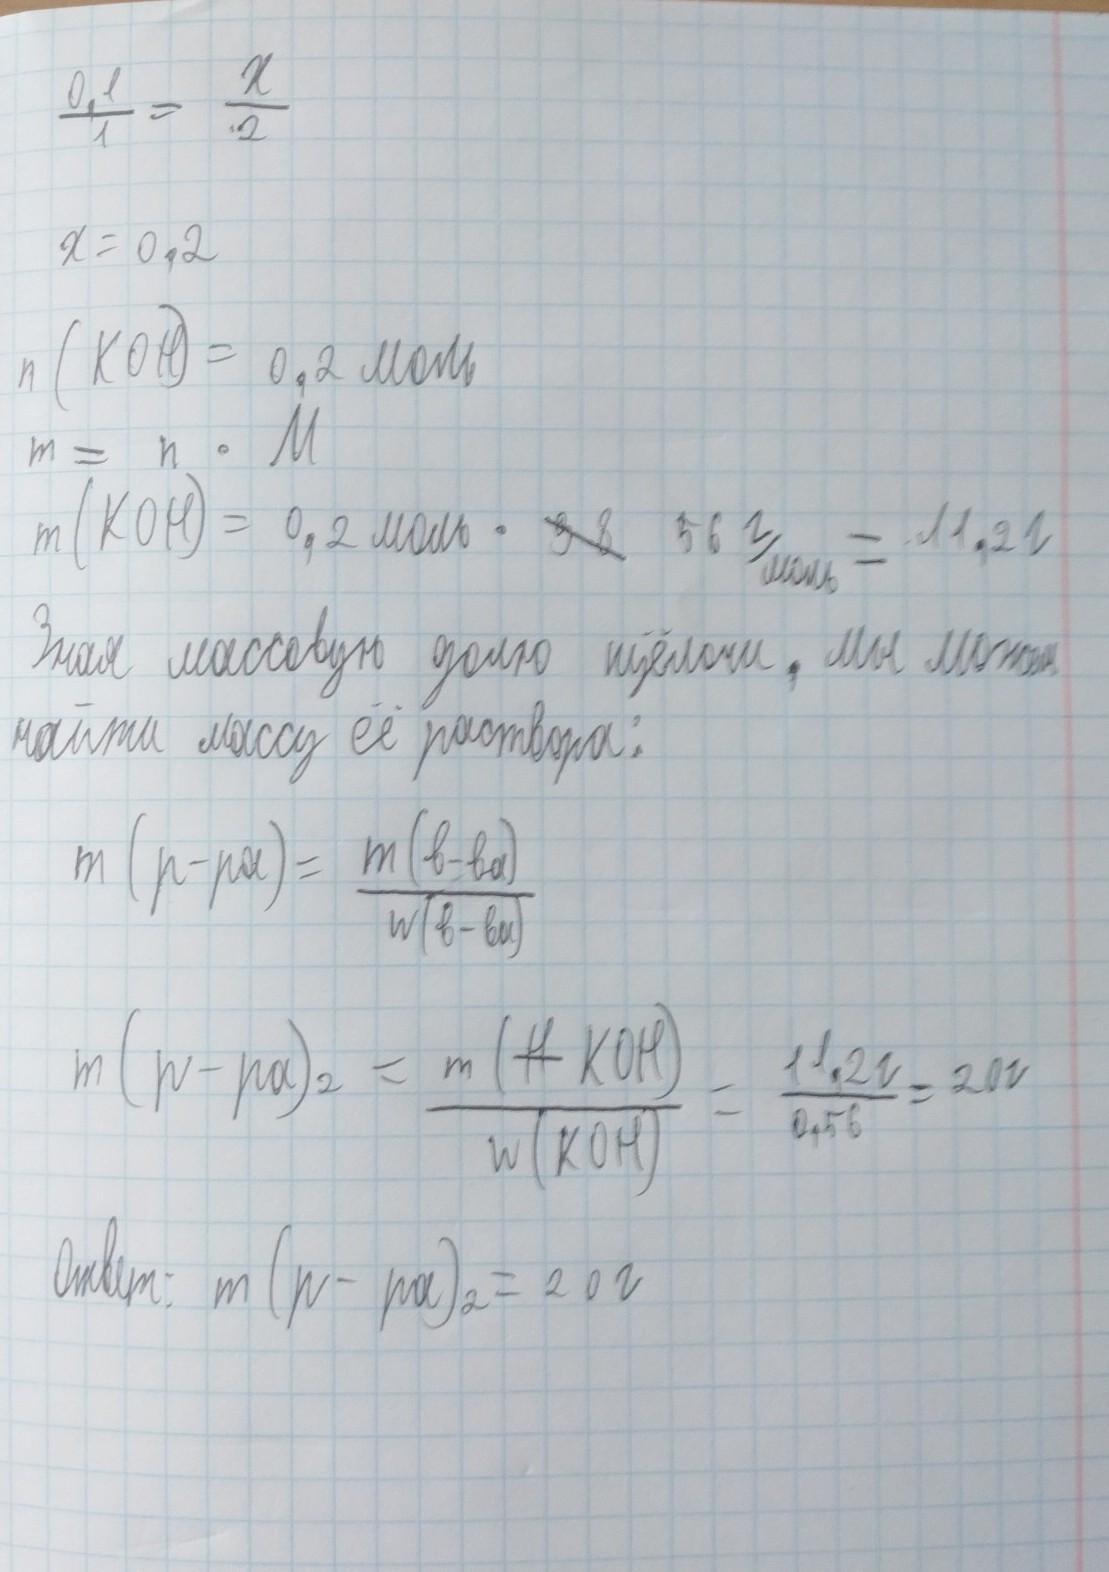 0,1/1 = x/2
x = 0,2
n(KOH) = 0,2 моль
m = n · M
m(KOH) = 0,2 моль · 56 г/моль = 11,2 г
Зная массовую долю щёлочи, мы можем
найти массу её раствора:
m(р-ра) = m(в-ва)/w(в-ва)
m(р-ра)₂ = m(KOH)/w(KOH) = 11,2 г/0,56 = 20 г
Ответ: m(р-ра)₂ = 20 г